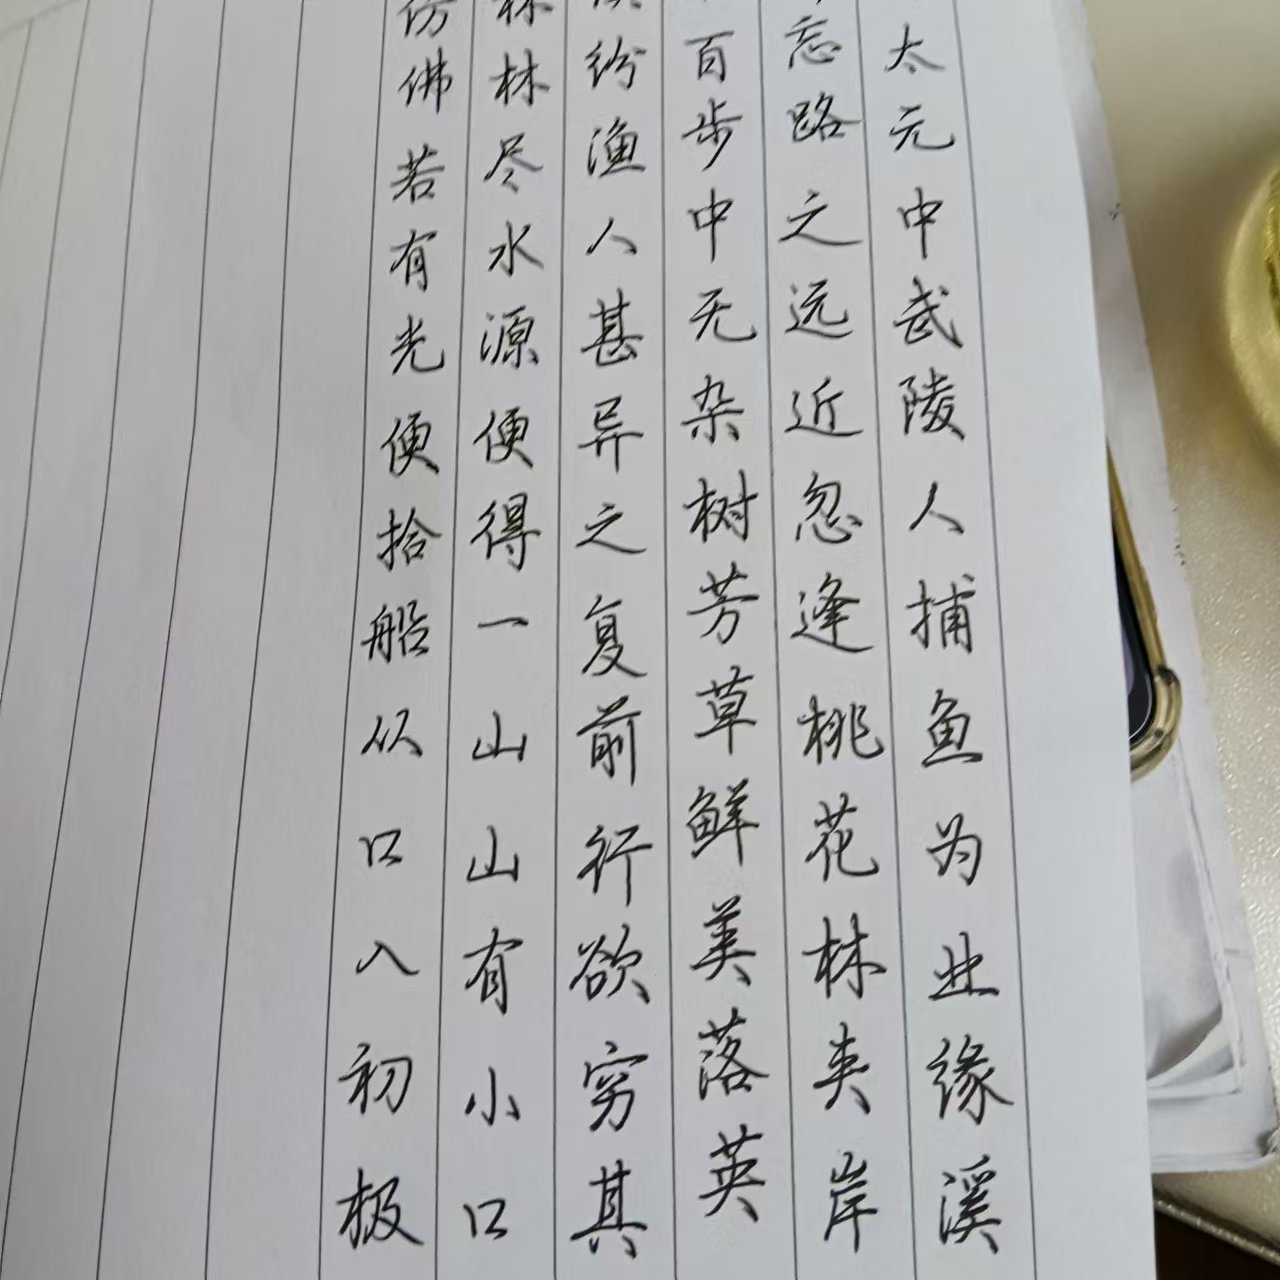 太元中武陵人捕鱼为业缘溪
忘路之远近忽逢桃花林夹岸
百步中无杂树芳草鲜美落英
纷渔人甚异之复前行欲穷其
林林尽水源便得一山山有小口
仿佛若有光便拾船从口入初极